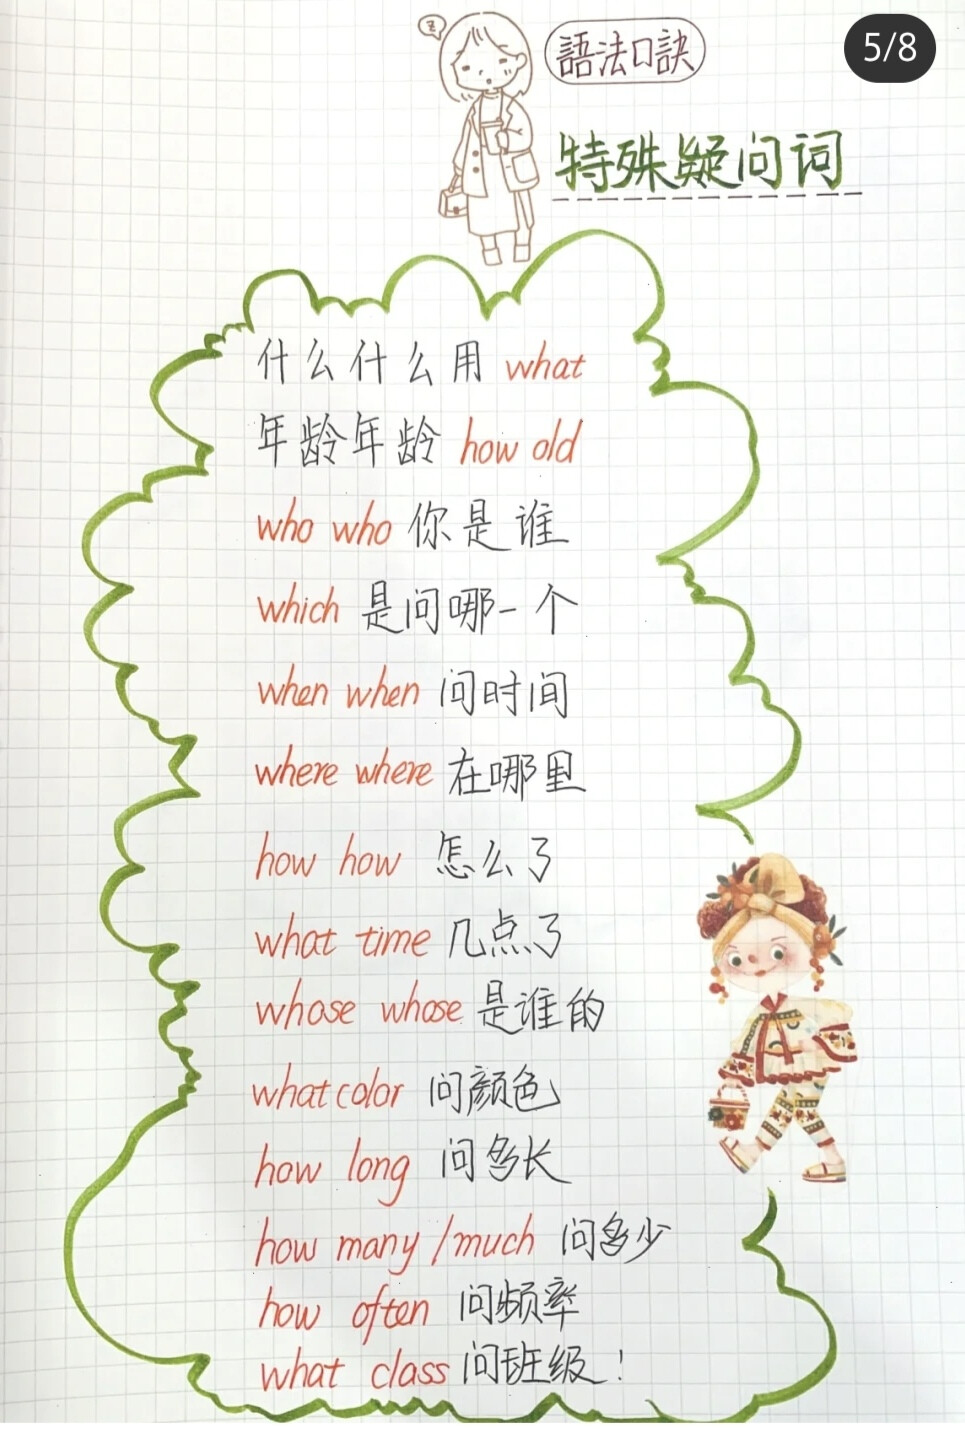 5/8
語法口訣
特殊疑问词
什么什么用 what
年龄年龄 how old
who who 你是谁
which 是问哪一个
when when 问时间
where where 在哪里
how how 怎么了
what time 几点了
whose whose 是谁的
what color 问颜色
how long 问多长
how many/much 问多少
how often 问频率
what class 问班级！